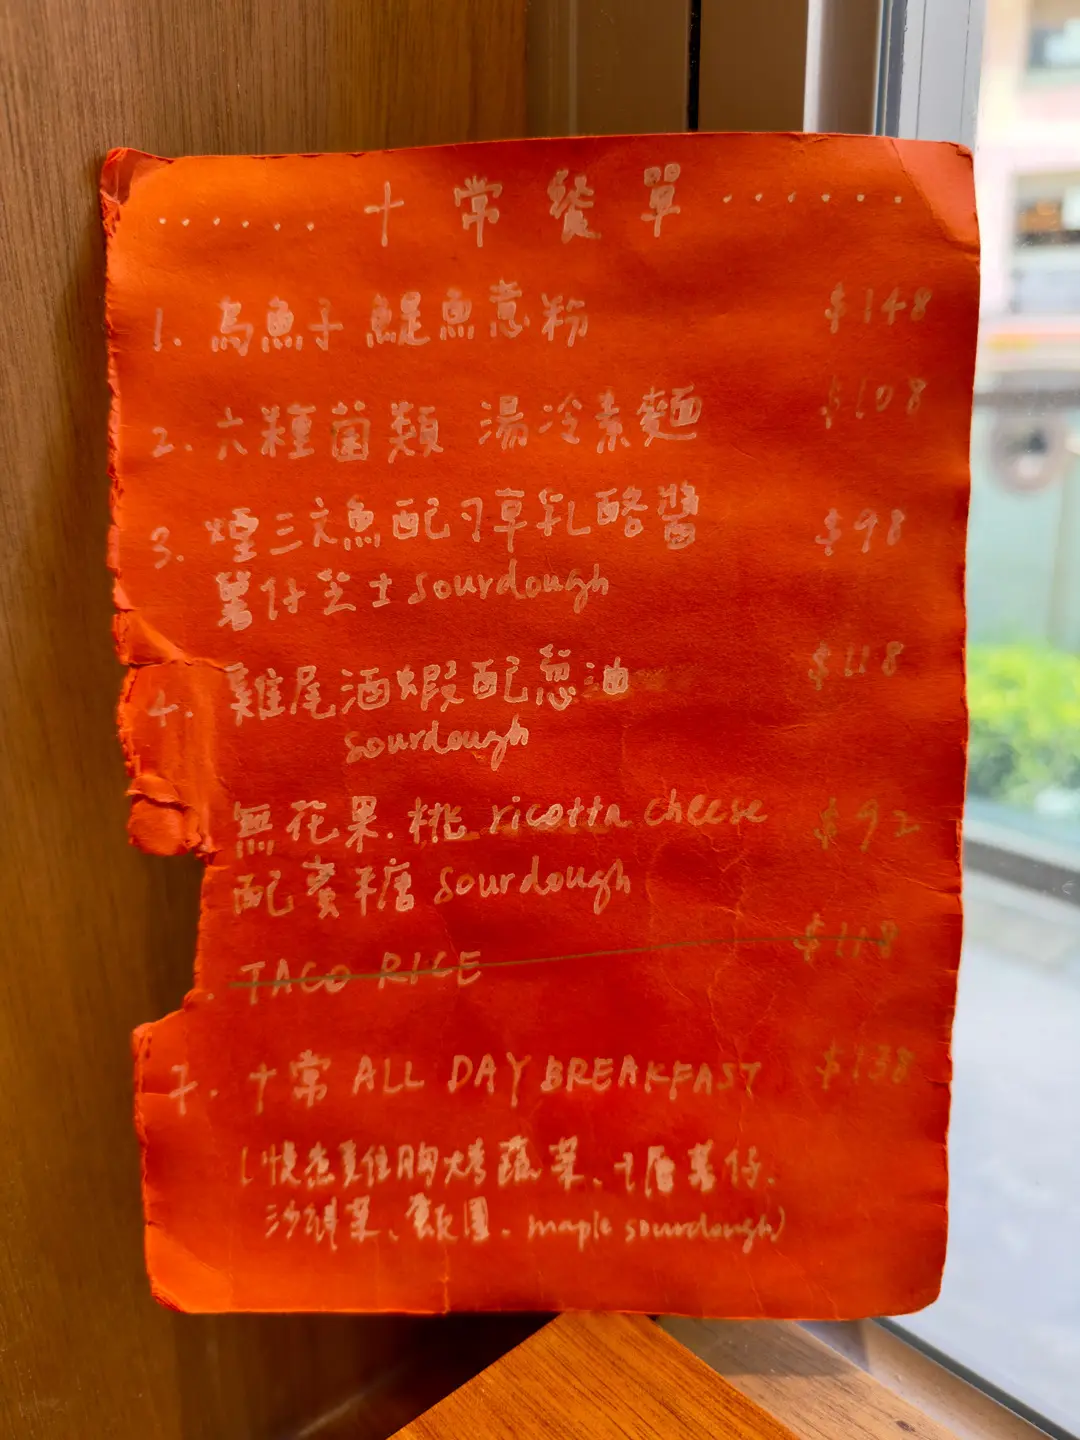 ...... 十常餐單 ......
1. 烏魚子 鯷魚意粉 $148
2. 六種菌類 湯冷素麵 $108
3. 煙三文魚配刁草乳酪醬 $98
薯仔芝士 sourdough
4. 雞尾酒蝦配蔥油 $118
sourdough
無花果.桃 ricotta cheese $92
配黃糖 sourdough
. TACO RICE $118
7. 十常 ALL DAY BREAKFAST $138
(慢煮雞胸烤蔬菜、薯仔.
沙律菜、飯團. maple sourdough)